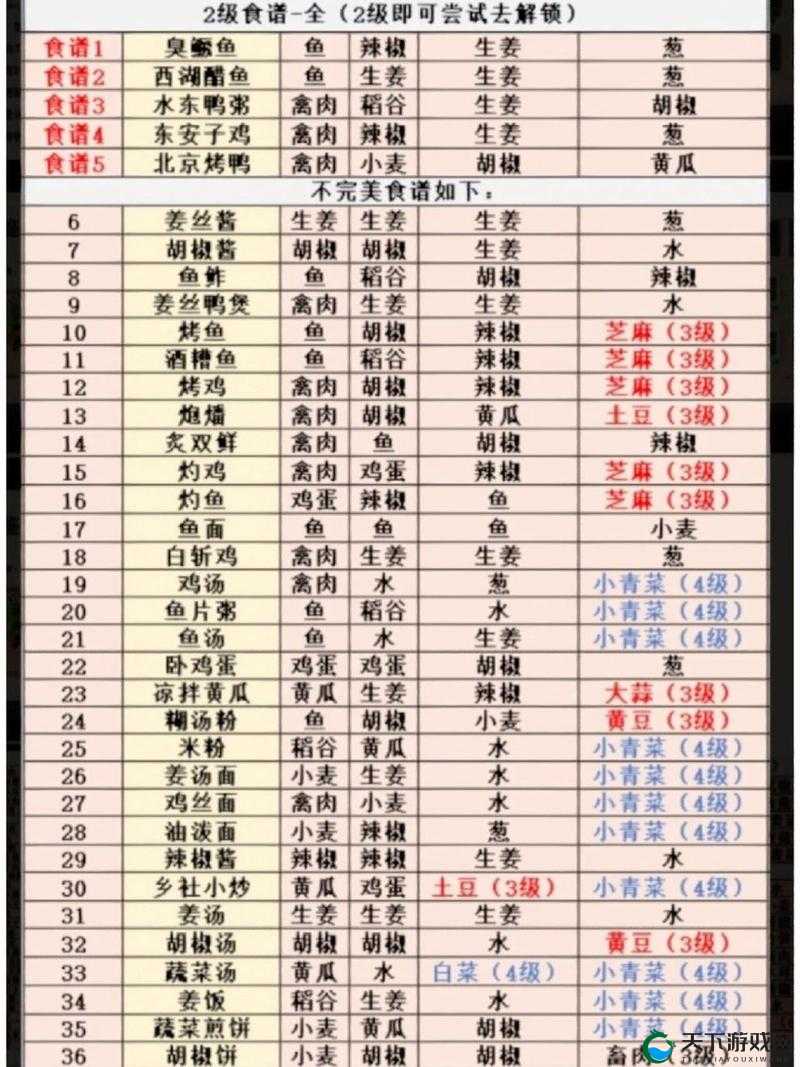 2级食谱-全（2级即可尝试去解锁）
食谱1 臭鳜鱼 鱼 辣椒 生姜 葱
食谱2 西湖醋鱼 鱼 生姜 生姜 葱
食谱3 水东鸭粥 禽肉 稻谷 生姜 胡椒
食谱4 东安子鸡 禽肉 辣椒 生姜 葱
食谱5 北京烤鸭 禽肉 小麦 胡椒 黄瓜
不完美食谱如下：
6 姜丝酱 生姜 生姜 生姜 葱
7 胡椒酱 胡椒 胡椒 生姜 水
8 鱼鲊 鱼 稻谷 胡椒 辣椒
9 姜丝鸭煲 禽肉 生姜 生姜 水
10 烤鱼 鱼 胡椒 辣椒 芝麻（3级）
11 酒糟鱼 鱼 稻谷 辣椒 芝麻（3级）
12 烤鸡 禽肉 胡椒 辣椒 芝麻（3级）
13 炮燔 禽肉 胡椒 黄瓜 土豆（3级）
14 炙双鲜 禽肉 鱼 胡椒 辣椒
15 灼鸡 禽肉 鸡蛋 辣椒 芝麻（3级）
16 灼鱼 鸡蛋 辣椒 鱼 芝麻（3级）
17 鱼面 鱼 鱼 鱼 小麦
18 白斩鸡 禽肉 生姜 生姜 葱
19 鸡汤 禽肉 水 葱 小青菜（4级）
20 鱼片粥 鱼 稻谷 水 小青菜（4级）
21 鱼汤 鱼 水 生姜 小青菜（4级）
22 卧鸡蛋 鸡蛋 鸡蛋 胡椒 葱
23 凉拌黄瓜 黄瓜 生姜 辣椒 大蒜（3级）
24 糊汤粉 鱼 胡椒 小麦 黄豆（3级）
25 米粉 稻谷 黄瓜 水 小青菜（4级）
26 姜汤面 小麦 生姜 水 小青菜（4级）
27 鸡丝面 禽肉 小麦 水 小青菜（4级）
28 油泼面 小麦 辣椒 葱 小青菜（4级）
29 辣椒酱 辣椒 辣椒 生姜 水
30 乡社小炒 黄瓜 鸡蛋 土豆（3级） 小青菜（4级）
31 姜汤 生姜 生姜 生姜 水
32 胡椒汤 胡椒 胡椒 水 黄豆（3级）
33 蔬菜汤 黄瓜 水 白菜（4级） 小青菜（4级）
34 姜饭 稻谷 生姜 水 小青菜（4级）
35 蔬菜煎饼 小麦 黄瓜 胡椒 小青菜（4级）
36 胡椒饼 小麦 胡椒 胡椒 畜肉（3级）
天下游戏